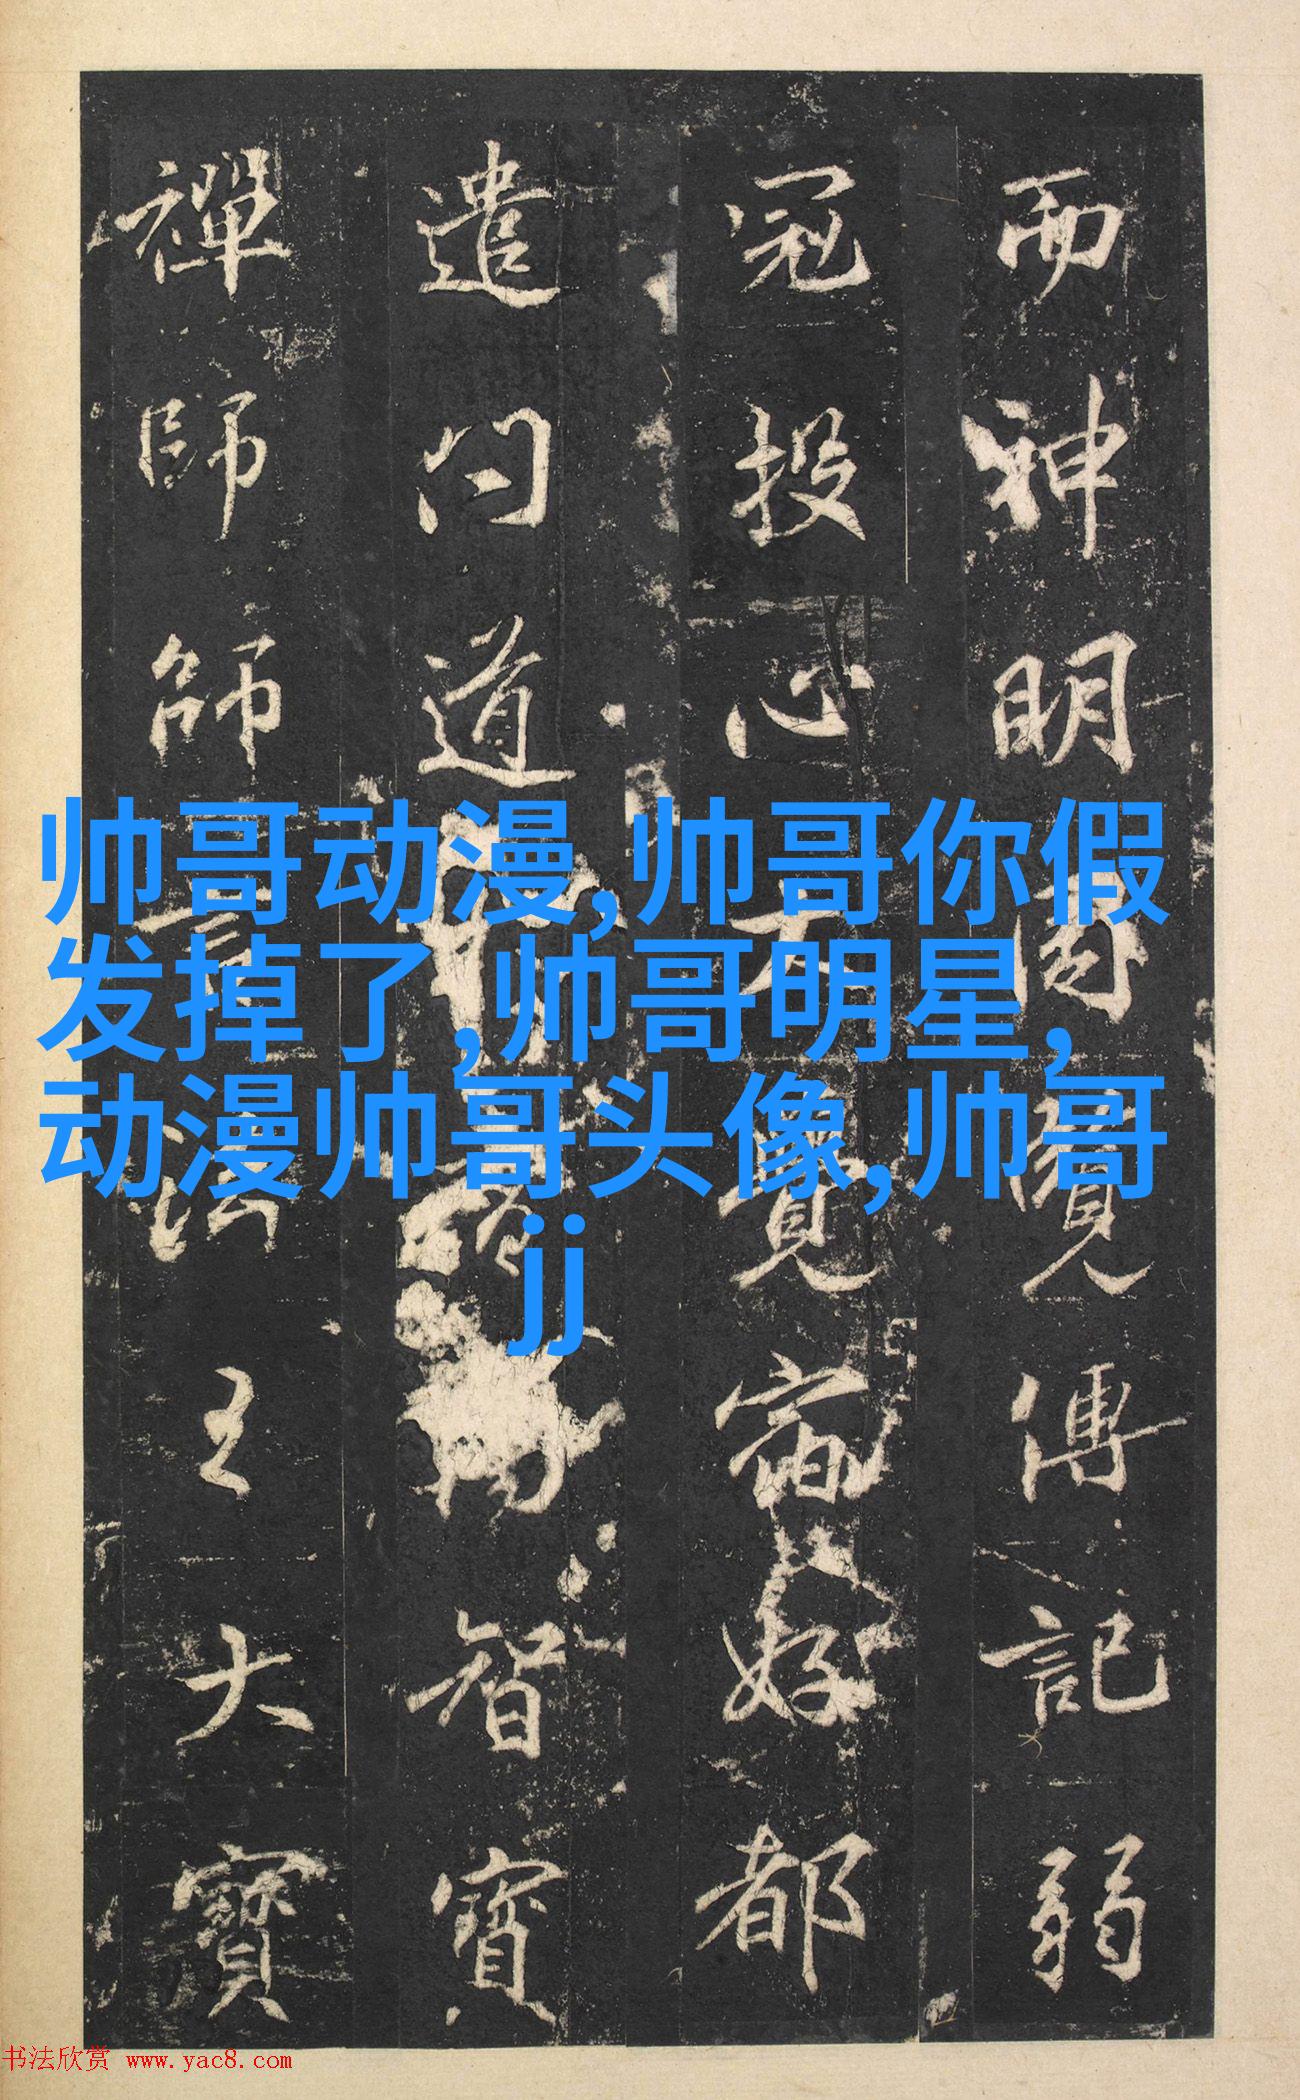 而神明博覽傳記弱
冠投心大覺寤好都
遣問道智寶
禪師師言法王大寶
帅哥动漫,帅哥你假
发掉了,帅哥明星,
动漫帅哥头像,帅哥
jj
书法欣赏 www.yac8.com